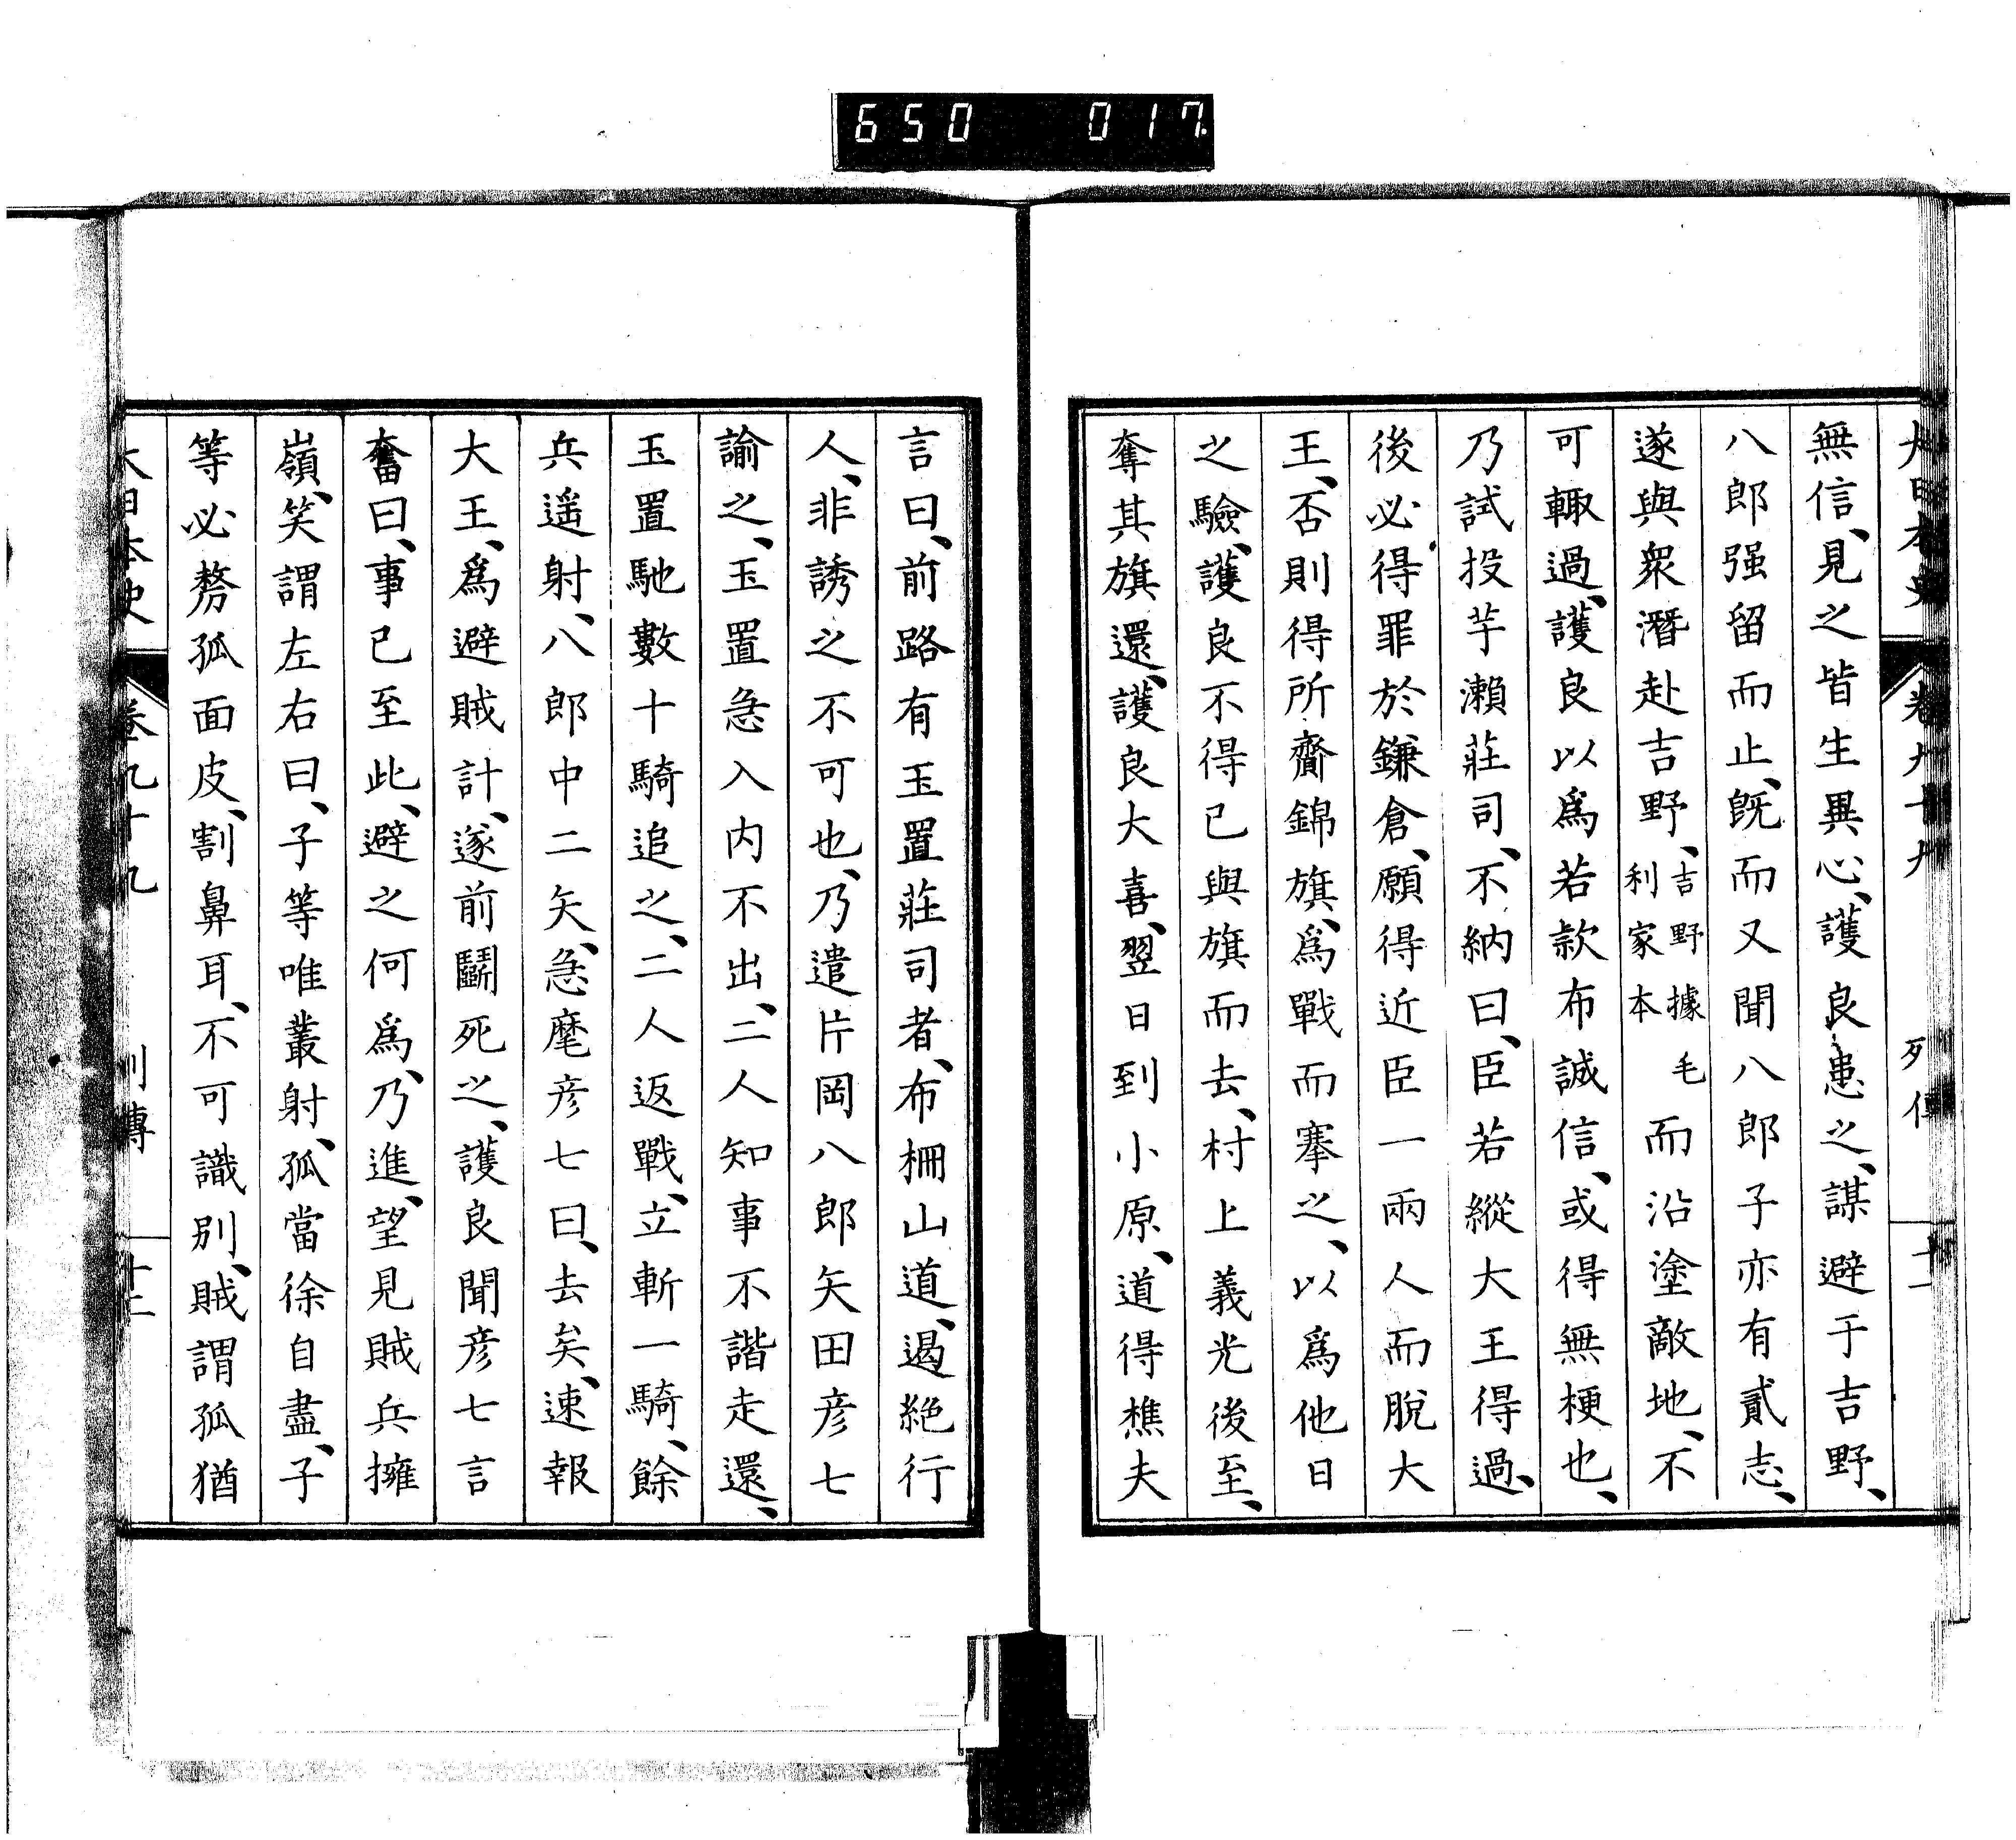 650 017
大日本史 卷九十九 列傳 十二
無信、見之皆生異心、護良患之、謀避于吉野、
八郎强留而止、既而又聞八郎子亦有貳志、
遂與衆潛赴吉野、吉野據毛利家本而沿塗敵地、不
可輙過、護良以爲若款布誠信、或得無梗也、
乃試投芋瀬莊司、不納曰、臣若縱大王得過、
後必得罪於鎌倉、願得近臣一兩人而脫大
王、否則得所齎錦旗、爲戰而搴之、以爲他日
之驗、護良不得已與旗而去、村上義光後至、
奪其旗還、護良大喜、翌日到小原、道得樵夫
言曰、前路有玉置莊司者、布柵山道、遏絶行
人、非誘之不可也、乃遣片岡八郎矢田彦七
諭之、玉置急入内不出、二人知事不諧走還、
玉置馳數十騎追之、二人返戰、立斬一騎、餘
兵遥射、八郎中二矢、急麾彦七曰、去矣、速報
大王、爲避賊計、遂前鬭死之、護良聞彦七言
奮曰、事已至此、避之何爲、乃進、望見賊兵擁
嶺、笑謂左右曰、子等唯叢射、孤當徐自盡、子
等必剺孤面皮、割鼻耳、不可識別、賊謂孤猶
大日本史 卷九十九 列傳 十三